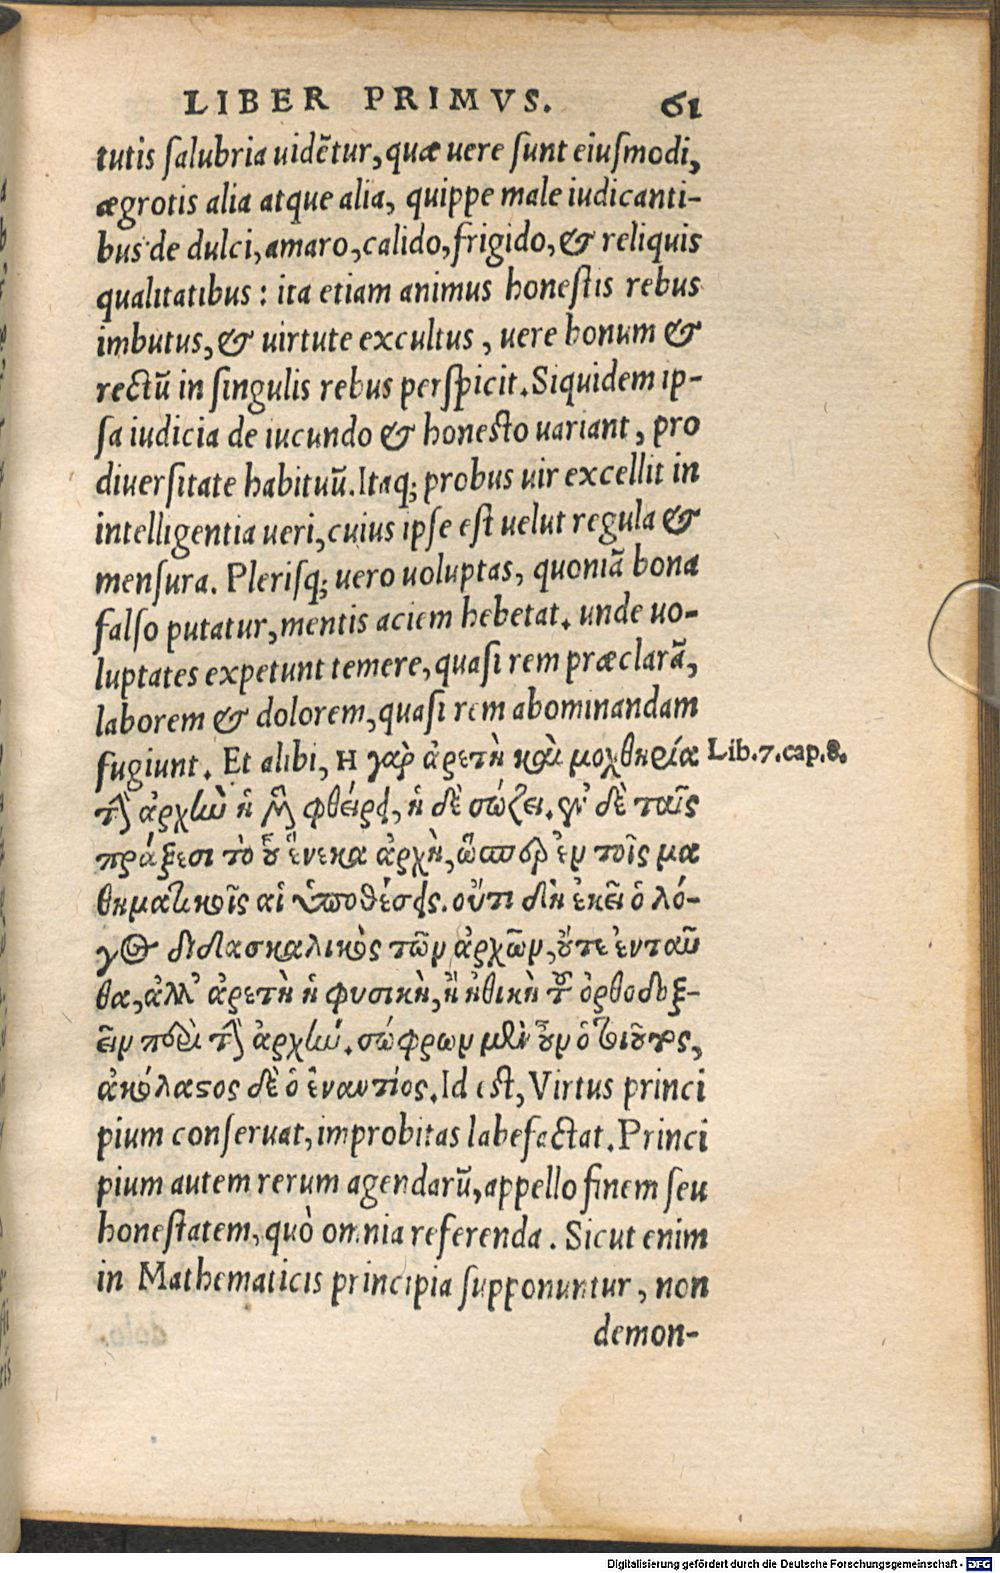 LIBER PRIMVS. 61
tutis salubria uidẽtur, quæ uere sunt eiusmodi,
ægrotis alia atque alia, quippe male iudicanti-
bus de dulci, amaro, calido, frigido, & reliquis
qualitatibus : ita etiam animus honestis rebus
imbutus, & uirtute excultus, uere bonum &
rectũ in singulis rebus perspicit. Siquidem ip-
sa iudicia de iucundo & honesto uariant, pro
diuersitate habituũ. Itaq; probus uir excellit in
intelligentia ueri, cuius ipse est uelut regula &
mensura. Plerisq; uero uoluptas, quoniã bona
falso putatur, mentis aciem hebetat. unde uo-
luptates expetunt temere, quasi rem præclarã,
laborem & dolorem, quasi rem abominandam
fugiunt. Et alibi, Η γὰρ ἀρετὴ καὶ μοχθηρία Lib.7.cap.8.
τὴν ἀρχὴν ἡ μὲν φθείρει, ἡ δὲ σώζει. ἐν δὲ ταῖς
πράξεσι τὸ οὗ ἕνεκα ἀρχὴ, ὥσπερ ἐν τοῖς μα
θηματικοῖς αἱ ὑποθέσεις. οὔτι δὴ ἐκεῖ ὁ λό-
γος διδασκαλικὸς τῶν ἀρχῶν, οὔτε ἐνταῦ
θα, ἀλλ' ἀρετὴ ἡ φυσικὴ, ἢ ἠθικὴ τοῦ ὀρθοδοξ-
εῖν περὶ τὴν ἀρχὴν. σώφρων μὲν οὖν ὁ τοιοῦτος,
ἀκόλαστος δὲ ὁ ἐναντίος. Id est, Virtus princi
pium conseruat, improbitas labefactat. Princi
pium autem rerum agendarũ, appello finem seu
honestatem, quò omnia referenda. Sicut enim
in Mathematicis principia supponuntur, non
demon-
Digitalisierung gefördert durch die Deutsche Forschungsgemeinschaft - DFG